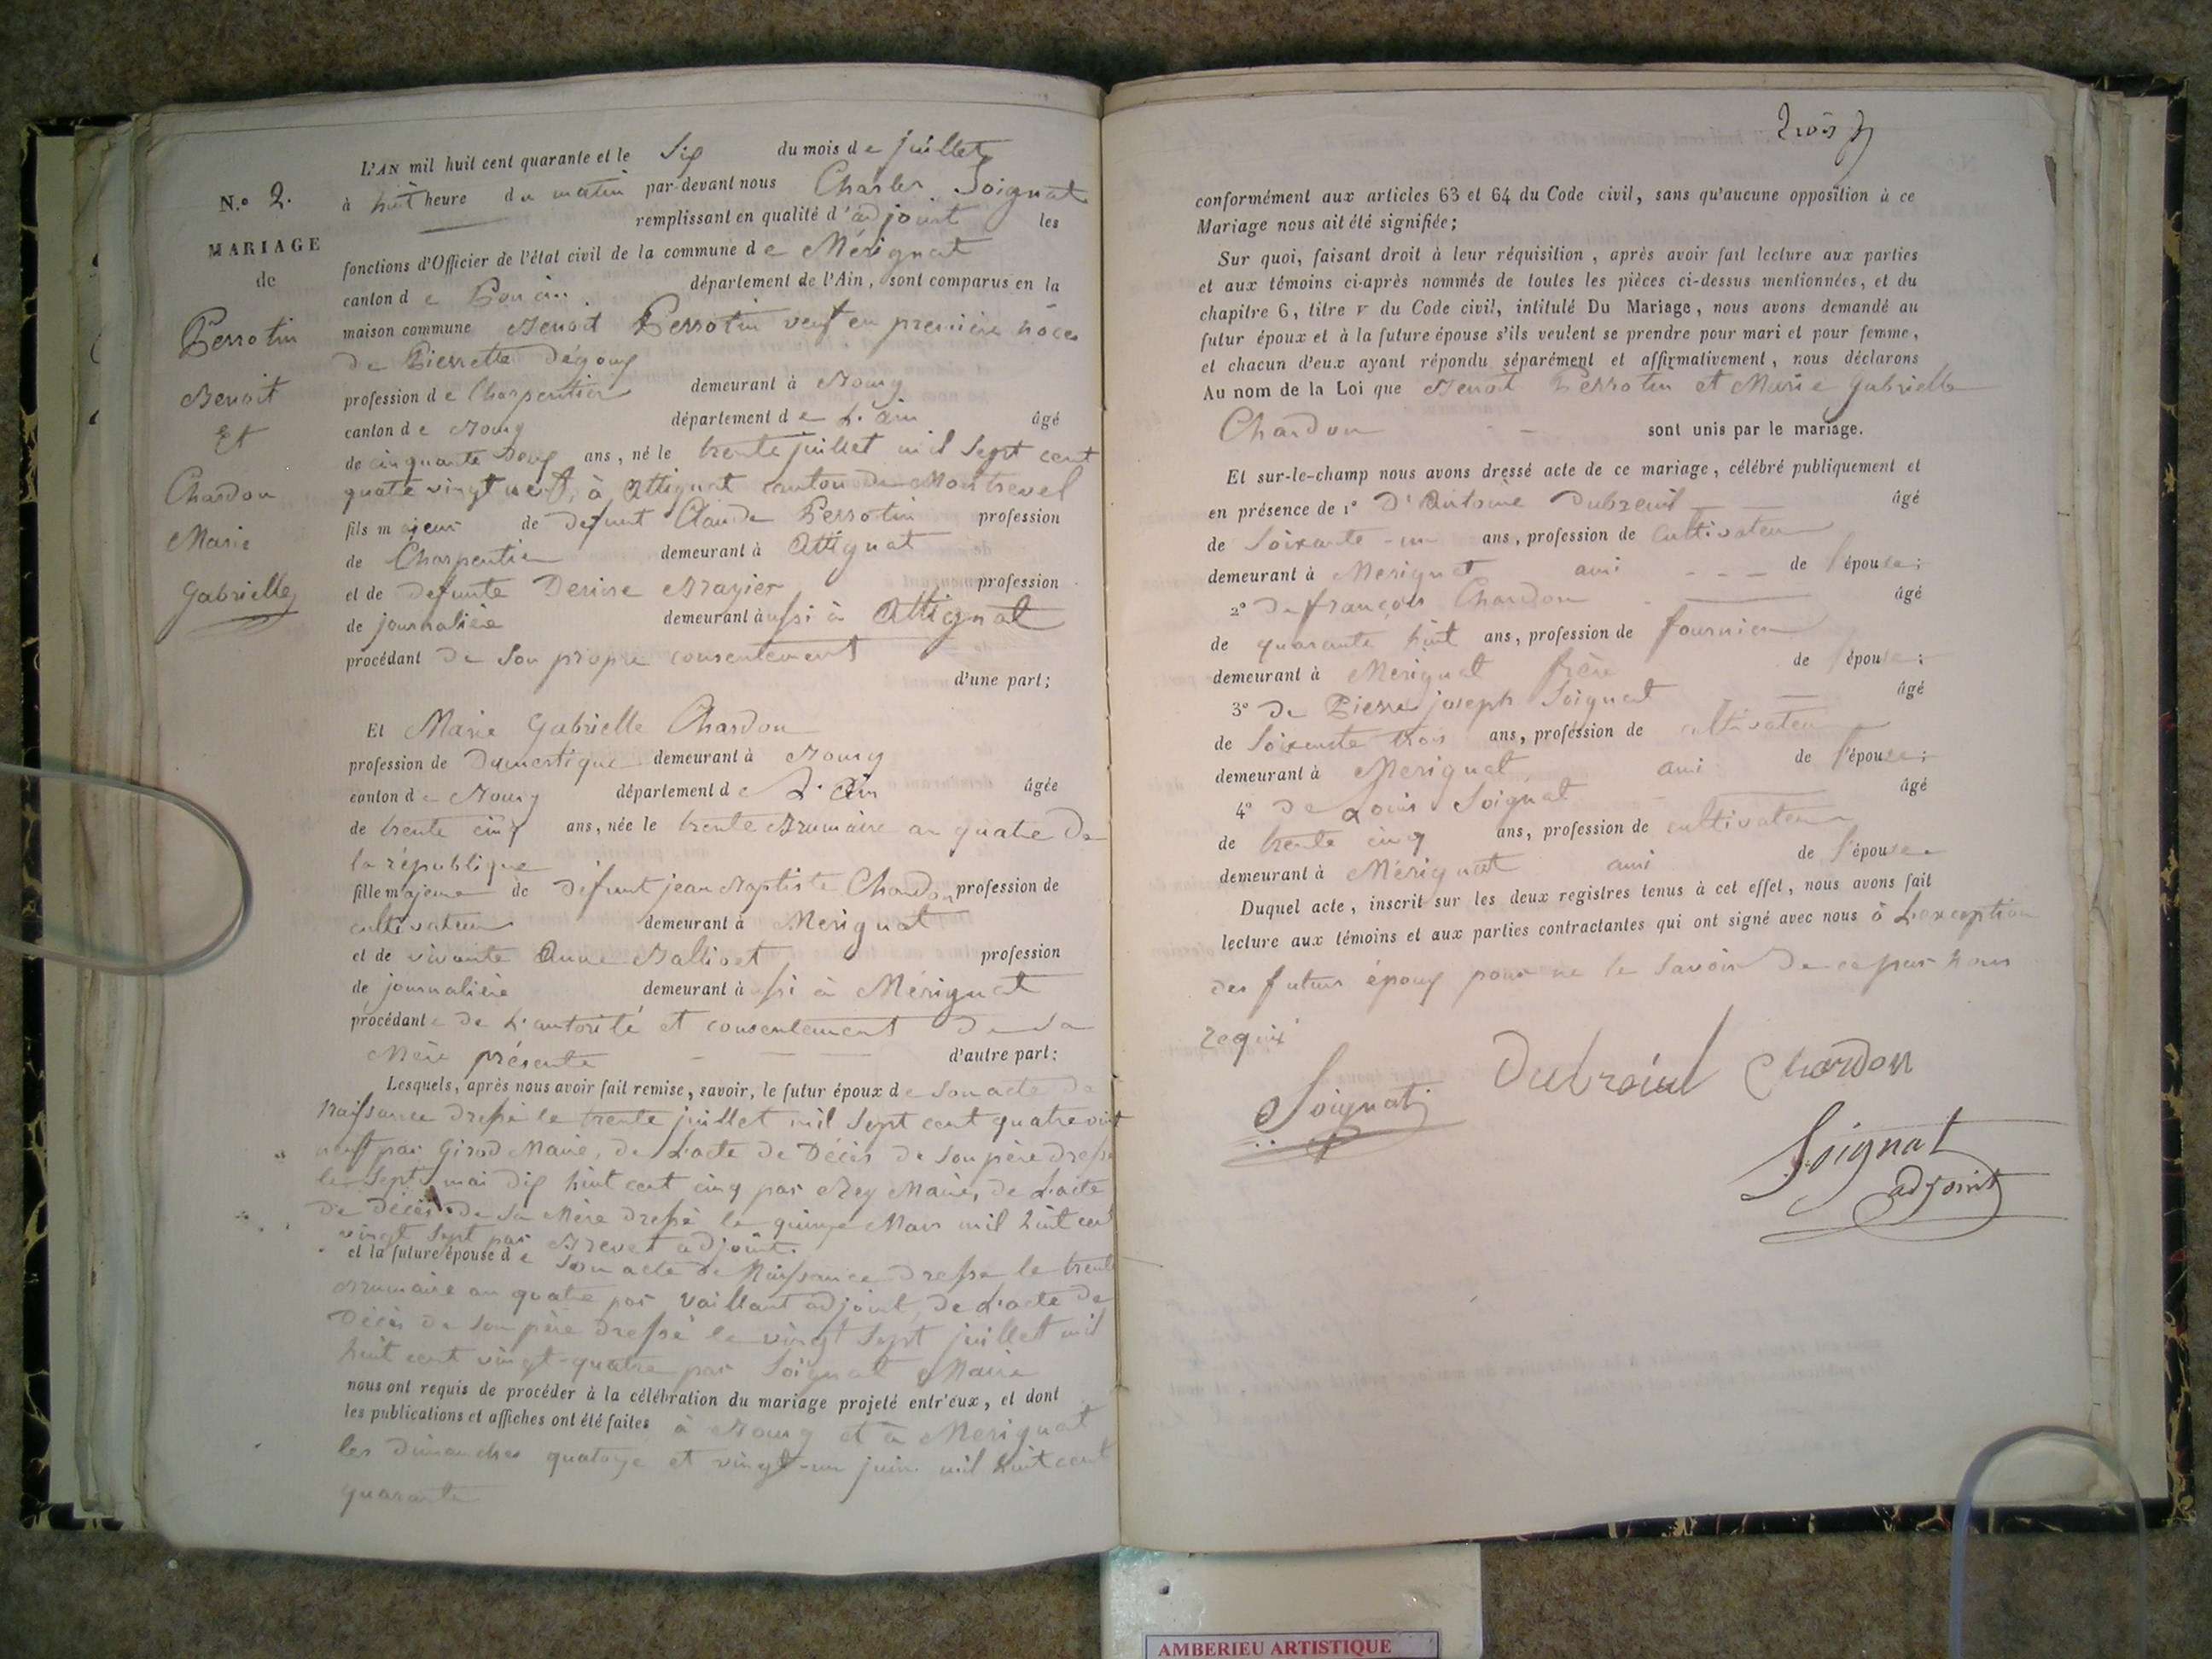 N.o 2.
MARIAGE
de
Perrotin
Benoit
Et
Chardon
Marie
Gabrielle
L'AN mil huit cent quarante et le Six du mois de juillet
à huit heure du matin par-devant nous Charles Soignat
remplissant en qualité d'adjoint les
fonctions d'Officier de l'état civil de la commune de Mérignat
canton de Poncin. département de l'Ain, sont comparus en la
maison commune Benoit Perrotin veuf en première noces
de Pierrette
profession de Charpentier demeurant à Bourg
canton de Bourg département de L'ain âgé
de cinquante Deux ans, né le trente juillet mil Sept cent
quatre vingt neuf, à Attignat canton de Montrevel
fils majeur de defunt Claude Perrotin profession
de Charpentier demeurant à Attignat
et de defunte Denise Brazier profession
de journalière demeurant aussi à Attignat
procédant de Son propre consentement
d'une part;
Et Marie Gabrielle Chardon
profession de Dumestique demeurant à Bourg
canton de Bourg département de L'Ain âgée
de trente cinq ans, née le trente Brumaire an quatre De
la république
fille majeure de défunt jean Baptiste Chardon profession de
cultivateur demeurant à Merignat
et de vivante Anne Ballivet profession
de journalière demeurant aussi à Mérignat
procédante de L'autorité et consentement De Sa
Mère présente d'autre part;
Lesquels, après nous avoir fait remise, savoir, le futur époux de Son acte De
Naissance dressé le trente juillet mil Sept cent quatre vint
neuf par Girod Maire, de L'acte de Décès de Son père dressé
le Sept mai dix huit cent cinq par Rey Maire, de L'acte
De Décès de Sa Mère dressé le quinze Mars mil huit cent
vingt Sept par Brevet adjoint.
et la future épouse de Son acte de Naissance dressé le trente
Brumaire an quatre par Vaillant adjoint, de L'acte de
Décès de Son père dressé le vingt Sept juillet mil
huit cent vingt-quatre par Soignat Maire
nous ont requis de procéder à la célébration du mariage projeté entr'eux, et dont
les publications et affiches ont été faites à Bourg et à Merignat
les dimanches quatorze et vingt-un juin mil huit cent
quarante
conformément aux articles 63 et 64 du Code civil, sans qu'aucune opposition à ce
Mariage nous ait été signifiée;
Sur quoi, faisant droit à leur réquisition, après avoir fait lecture aux parties
et aux témoins ci-après nommés de toutes les pièces ci-dessus mentionnées, et du
chapitre 6, titre v du Code civil, intitulé Du Mariage, nous avons demandé au
futur époux et à la future épouse s'ils veulent se prendre pour mari et pour femme,
et chacun d'eux ayant répondu séparément et affirmativement, nous déclarons
Au nom de la Loi que Benoit Perrotin et Marie Gabrielle
Chardon sont unis par le mariage.
Et sur-le-champ nous avons dressé acte de ce mariage, célébré publiquement et
en présence de 1° D'Antoine Dubreuil âgé
de Soixante-un ans, profession de Cultivateur
demeurant à Merignat ami de l'épouse;
2° De françois Chardon âgé
de quarante huit ans, profession de fournier
demeurant à Merignat frère de l'épouse;
3° De Pierre joseph Soignat âgé
de Soixante trois ans, profession de cultivateur
demeurant à Merignat ami de l'épouse;
4° de Louis Soignat âgé
de trente cinq ans, profession de cultivateur
demeurant à Mérignat ami de l'épouse
Duquel acte, inscrit sur les deux registres tenus à cet effet, nous avons fait
lecture aux témoins et aux parties contractantes qui ont signé avec nous à L'exception
des futurs époux pour ne le Savoir De ce par nous
requis
Dubreuil Chardon
Soignat
Soignat
adjoint
AMBERIEU ARTISTIQUE